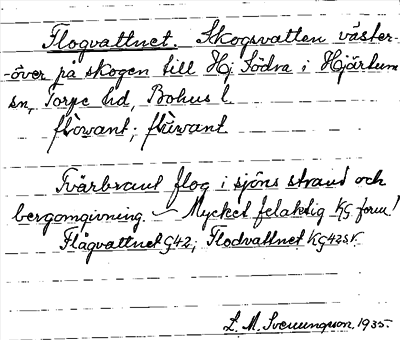 Flogvattnet. Skogsvatten väster-
-över på skogen till Hj Södra i Hjärtum
sn, Torpe hd, Bohus l.
flòwant; flùwant
Tvärbrant flog i sjöns strand och
bergomgivning. – Mycket felaktig KG form!
Flågvattnet G42; Flodvattnet KG42SV.
L. M. Svenungson, 1935.